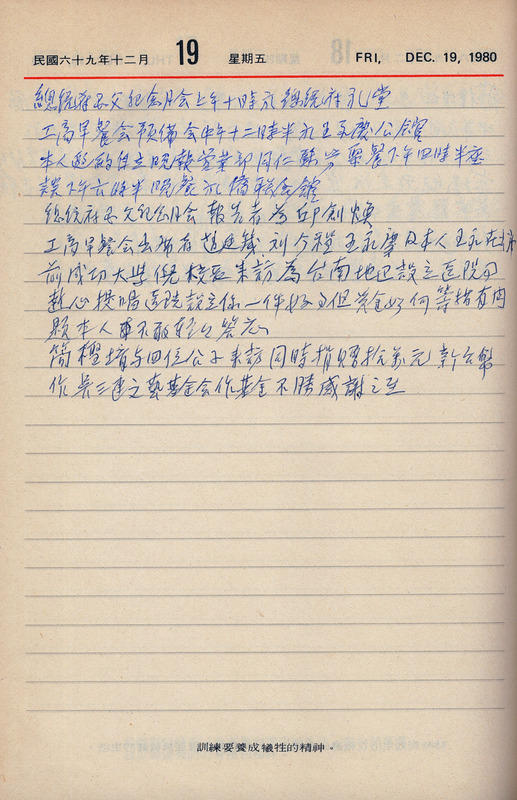 民國六十九年十二月 19 星期五 FRI, DEC. 19, 1980
總統府國父紀念月會上午十時於總統府礼堂
工商早餐会預備会中午十二時半於王永慶公館
本人邀約自立晚報營業部同仁聚餐下午四時半座
談下午六時半晚餐於僑聯会館
總統府國父紀念月會報告者為邱創煥
工商早餐会出席者趙廷箴 王永慶及本人王永在
前成功大學倪校長來訪為台南地区設立医院
熱心 医院設立係一件好 但 如何籌措有問
題本人 不敢輕 答應
簡 四位公子來訪同時捐贈拾萬元新台幣
作吳三連文藝基金会作基金不勝感謝之至
訓練要養成犧牲的精神。